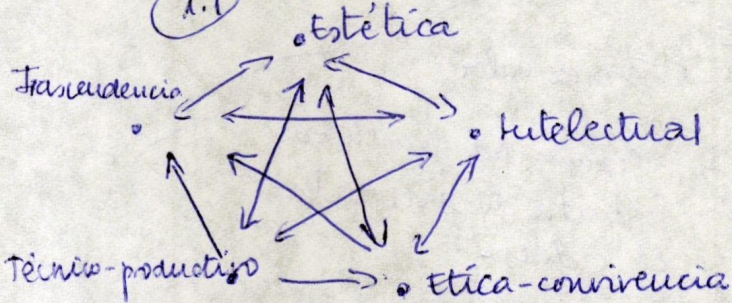 1.1
Estética
Trascendencia
Intelectual
Técnico-productivo
Etica-convivencia